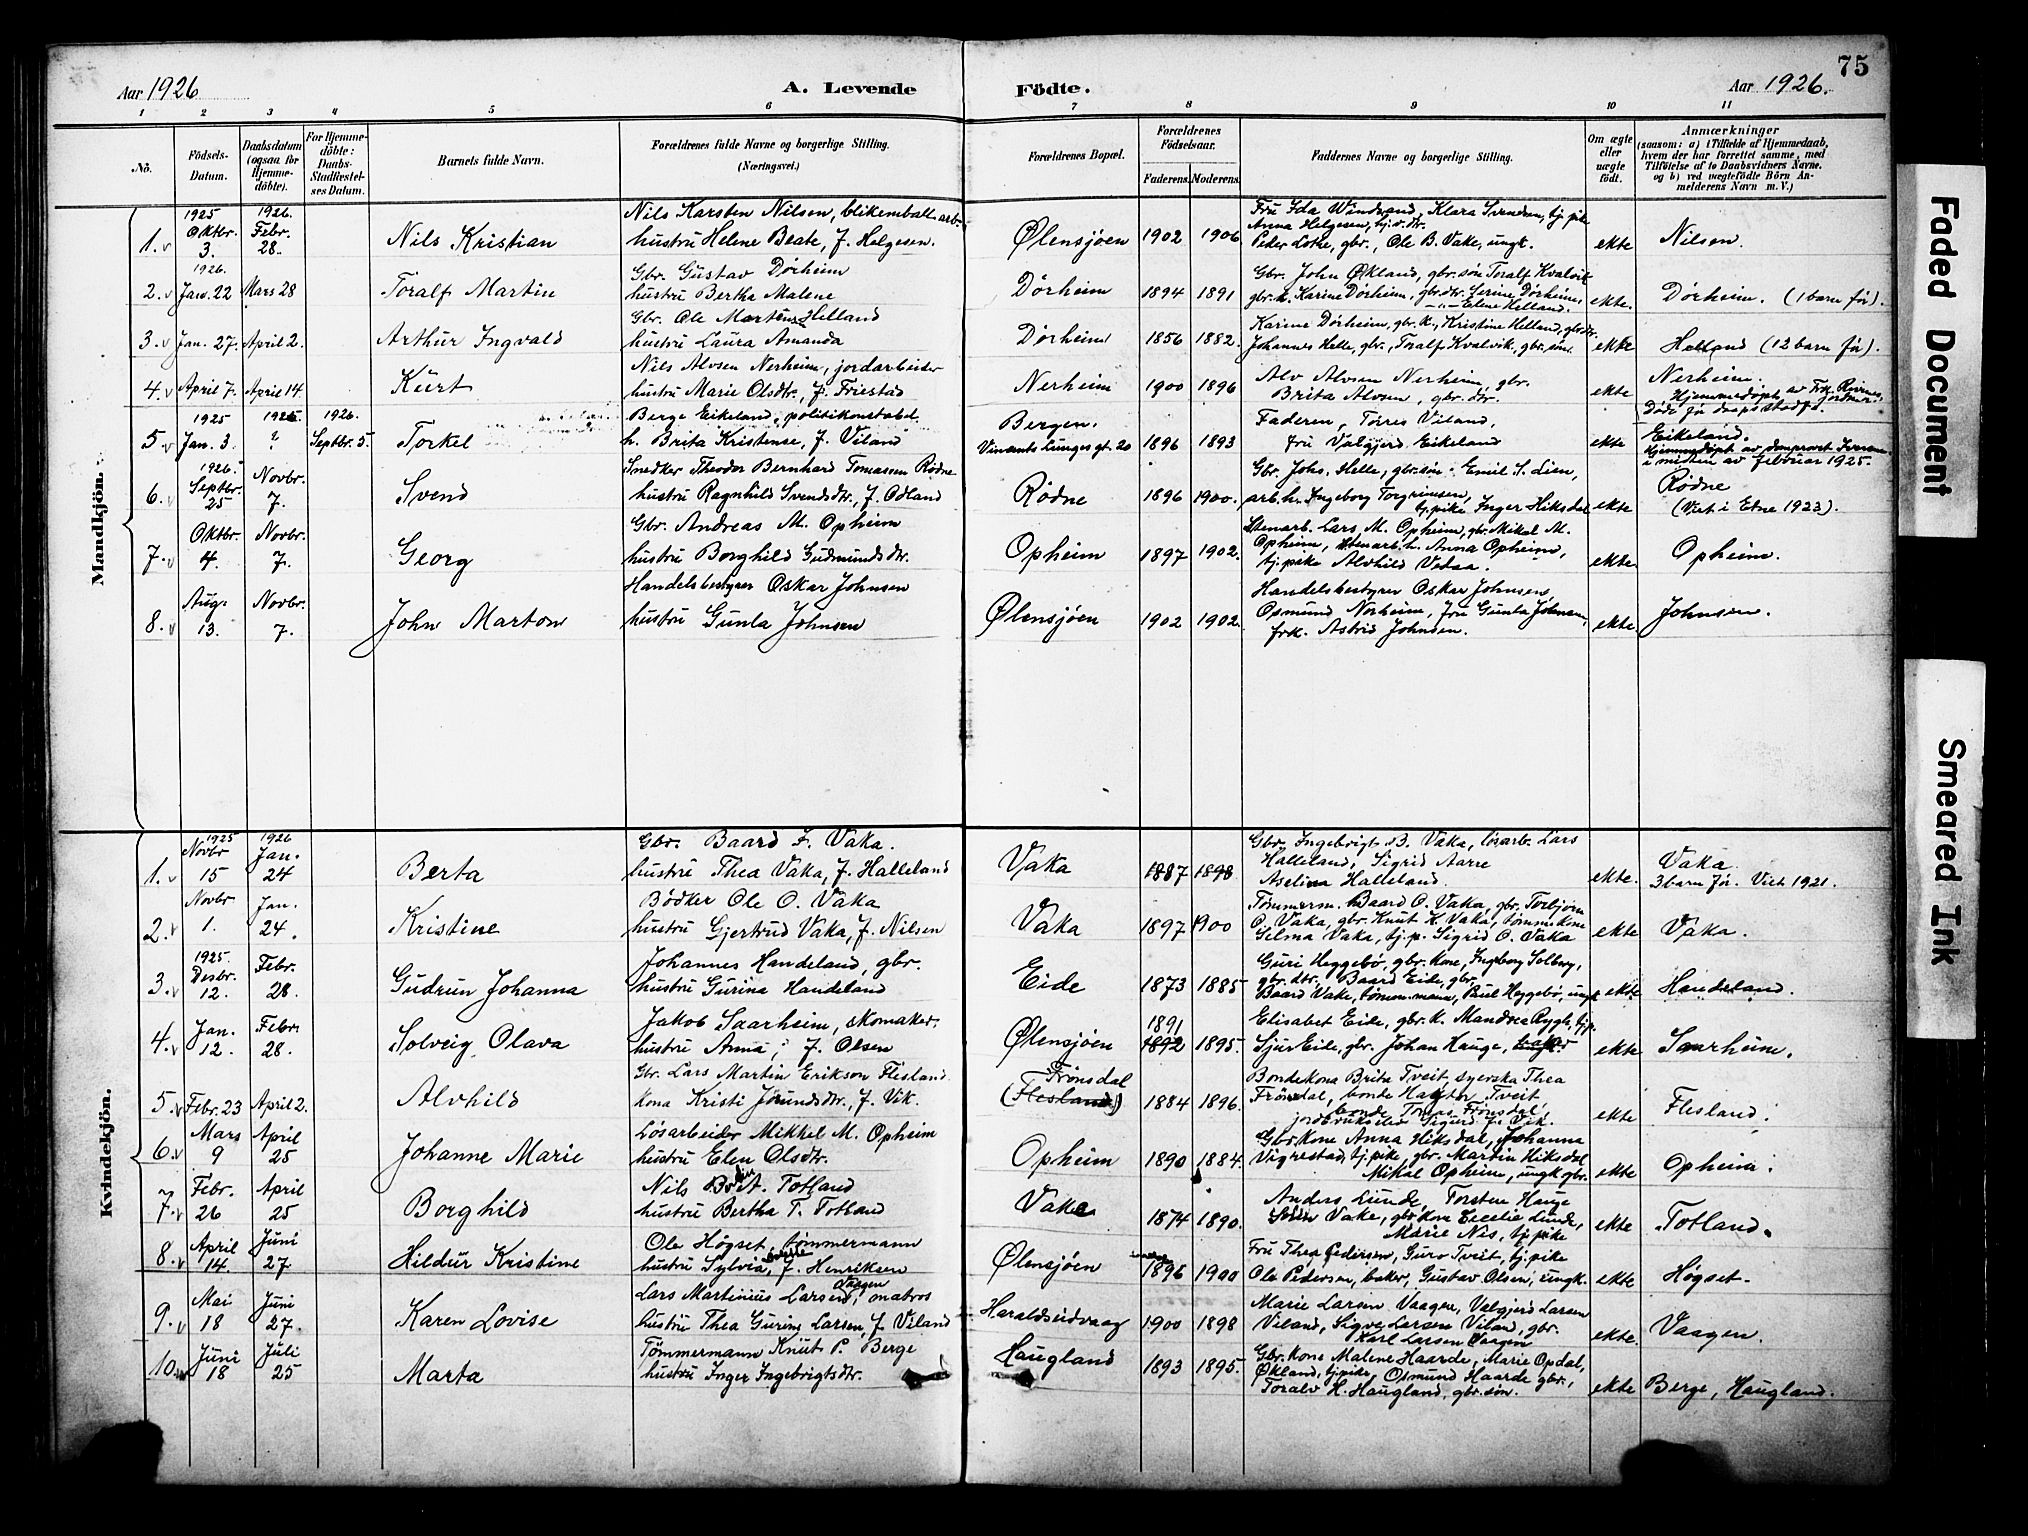 75
Aar 1926
A. Levende
Födte.
Aar 1926.
1 2 3 4 5 6 7 8 9 10 11
No.
Födsels-Datum.
Daabsdatum (ogsaa for Hjemme-döbte).
For Hjemme-döbte: Daabs-Stadfestel-ses Datum.
Barnets fulde Navn.
Forældrenes fulde Navne og borgerlige Stilling.
(Næringsvei.)
Forældrenes Bopæl.
Forældrenes Födselsaar.
Faderens. Moderens.
Faddernes Navne og borgerlige Stilling.
Om ægte eller uægte födt.
Anmærkninger
(saasom: a) i Tilfælde af Hjemmedaab, hvem der har forrettet samme, med Tilföielse af to Daabsvidners Navne, og b) ved uægtefödte Börn An-melderens Navn m. V.)
Mandkjön.
1925 1926.
1. Oktbr. 3. Febr. 28. Nils Kristian
Nils Karsten Nilsen, blikemball.arb.
hustru Helene Beate, f. Helgesen.
Ølensjøen 1902 1906
Fru Ida Windsand, Klara Svendsen, tj.pike
Anna Helgesen, tj.
Peder Lothe, gbr., Ole B. Vake, ungk.
ekte Nilsen.
1926.
2. Jan. 22 Mars 28 Toralf Martin
Gbr. Gustav Dörheim
hustru Bertha Malene
Dörheim 1894 1891
Gbr. John Økland, gbr. sön Toralf Kvalvik
gbr.k. Karine Dörheim, gbr.dtr. Serine Dörheim,
Eline Helland.
ekte. Dörheim. (1 barn för).
3. Jan. 27. April 2. Arthur Ingvald
Gbr. Ole Martin Helland
hustru Laura Amanda
Dörheim 1856 1882.
Karine Dörheim, gbr. k., Kristine Helland, gbr.dtr.
Johannes Helle, gbr., Toralf Kvalvik, gbr. sön.
ekte Helland (12 barn för).
4. April 7. April 14 Kurt
Nils Alvsen Nerheim, jordarbeider
hustru Marie Olsdtr., f. Friestad
Nerheim 1900 1896
Alv Alvsen Nerheim, gbr.
Brita Alvsen, gbr. dtr.
ekte Nerheim.
Hjemmedöpt av Frk.
Död för daapsstadf.
1925 1925. 1926.
5 Jan. 3. ? Septbr. 5. Torkel
Berge Eikeland, politikonstabel
h. Brita Kristense, f. Viland
Bergen.
1896 1893
Faderen, Törres Viland,
Fru Valgjerd Eikeland
ekte Eikeland.
Hjemmedöpt av domprovst
i midten av februar 1925.
1926.
6. Septbr. 25 Novbr. 7. Svend
Snedker Theodor Bernhard Tomassen Rödne
hustru Ragnhild Svendsdtr., f. Ødland
Rödne 1896 1900.
Gbr. Johs. Helle, gbr.sön Emil S. Lien,
arb.h. Ingeborg Torgrimsen,
tj.pike Inger Hiksdal
ekte Rödne
(Viet i Etne 1923).
7. Oktbr. 4. Novbr. 7. Georg
Gbr. Andreas M. Opheim
hustru Borghild Gudmundsdtr.
Opheim 1897 1902.
Stenarb. Lars M. Opheim, gbr. Mikal M.
Opheim, stenarb.h. Anna Opheim,
tj.pike Alvhild Vedaa.
ekte Opheim.
8. Aug. 13. Novbr. 7. John Marton
Handelsbestyrer Oskar Johnsen
hustru Gunla Johnsen
Ølensjöen 1902 1902.
Handelsbestyrer Oskar Johnsen,
Osmund Norheim, fru Gunla Johnsen,
frk. Astrid Johnsen.
ekte Johnsen.
Kvindekjön.
1925 1926
1. Novbr 15 Jan. 24 Berta
Gbr. Baard I. Vaka.
hustru Thea Vaka, f. Halleland
Vaka 1887 1898
Gbr. Ingebrigt B. Vaka, lösarb. Lars
Halleland, Sigrid Aarre
Aselina Halleland.
ekte. Vaka.
3 barn för. Viet 1921.
2. Novbr 1. Jan. 24. Kristine
Bödker Ole O. Vaka
hustru Gjertrud Vaka, f. Nilsen
Vaka 1897 1900
Tömmerm. Baard O. Vaka, gbr. Torbjörn
O. Vaka, gbr. Knut H. Vaka, tömm.kone
Gilma Vaka, tj.p. Sigrid O. Vaka
ekte Vaka.
1925.
3. Desbr. 12. Febr. 28. Gudrun Johanna
Johannes Handeland, gbr.
hustru Gurina Handeland
Eide 1873 1885
Guri Heggebö, gbr. kone, Ingeborg Solberg,
gbr. dtr. Baard Eide, gbr.
Baard Vake, tömm.mann, Paul Heggebö, ungk.
ekte Handeland.
4. Jan. 12. Febr. 28. Solveig Olava
Jakob Saarheim, skomaker.
hustru Anna, f. Olsen
Ølensjöen 1891 1892 1895.
Elisabet Eide, gbr.k. Mandrea Rygh, tj.p.
Sjur Eide, gbr. Johan Hauge,
ekte Saarheim.
5. Febr. 23 April 2. Alvhild
Gbr. Lars Martin Erikson Flesland
kona Kristi Jörundsdtr., f. Vik.
Frönsdal
(Flesland) 1884 1896.
Bondekona Brita Tveit, syerska Thea
Frönsdal, bonde Haktor Tveit,
bonde Tomas Frönsdal,
jordbrukselev Sigurd J. Vik.
ekte Flesland.
6. Mars 9 April 25 Johanne Marie
Lösarbeider Mikkel M. Opheim
hustru Elen Olsdtr.
Opheim 1890 1884.
Gbr.kone Anna Hiksdal, Johanna
Vigrestad, tj.pike, gbr. Martin Hiksdal
Mikal Opheim, ungk. gbr.
ekte Opheim.
7. Febr. 26 April 25 Borghild
Nils T. Totland
hustru Bertha T. Totland
Vake 1874 1890.
Anders Lunde, Torsten Hauge
Vake, gbr. kone Cecelie Lunde,
Marie Nis, tj.pike
ekte Totland.
8. April 14. Juni 27. Hildur Kristine
Ole Högset, tömmermann
hustru Sylvia, f. Henriksen
Ølensjöen 1896 1900
Fru Thea Pedersen, Guro Tveit, tj.pike
Ole Pedersen, baker, Gustav Olsen, ungk.
ekte Högset.
9. Mai 18 Juni 27. Karen Lovise
Lars Martinius Larsen Vaagen, matros
hustru Thea Gurine Larsen, f. Viland
Haraldseidvaag 1900 1898
Marie Larsen Vaagen, Valgjerd Larsen
Viland, Sigve Larsen Viland, gbr.
Karl Larsen Vaagen
ekte. Vaagen.
10. Juni 18 Juli 25 Marta
Tömmermann Knut P. Berge
hustru Inger Ingebrigtsdtr.
Haugland 1893 1895.
Gbr. kone Malene Haarde, Marie Opdal,
Økland, tj.pike, Osmund Haarde gbr.,
Toralv H. Haugland, gbr. sön.
ekte Berge, Haugland.
Faded Document
Smeared Ink